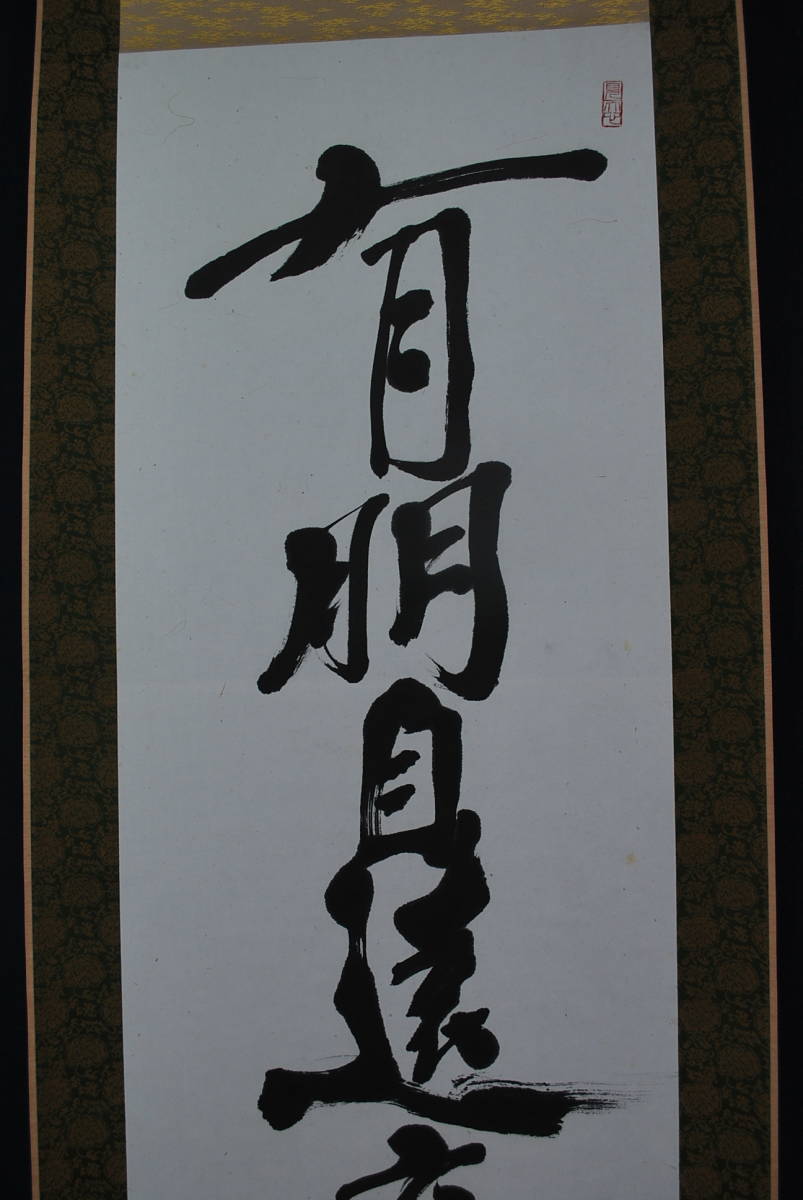 有朋自遠